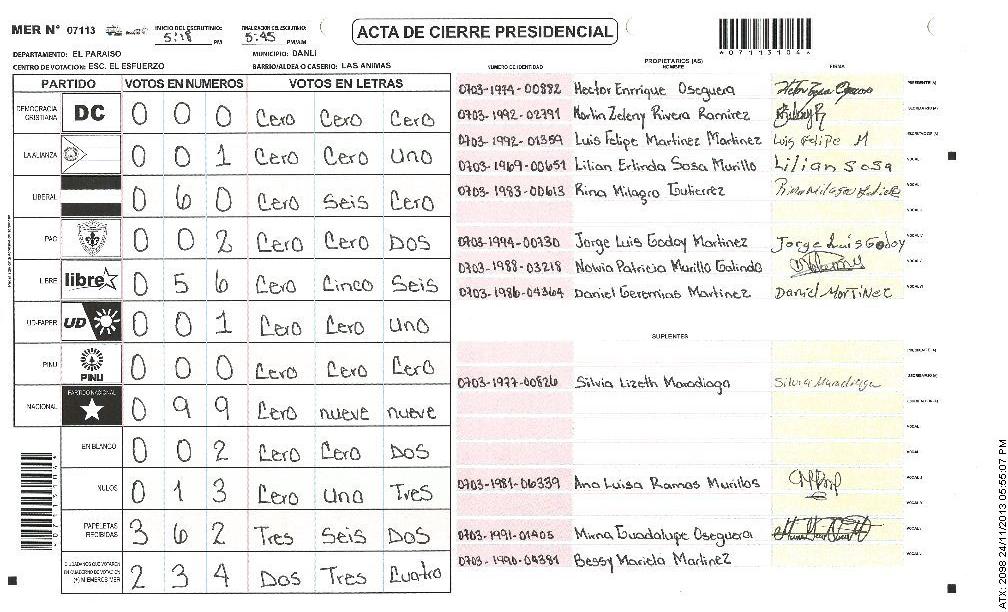 MER N° 07113
INICIO DEL ESCRUTINIO: 5:18 PM
FINALIZACION DEL ESCRUTINIO: 5:45 PM/AM
ACTA DE CIERRE PRESIDENCIAL
DEPARTAMENTO: EL PARAISO
MUNICIPIO: DANLI
CENTRO DE VOTACION: ESC. EL ESFUERZO
BARRIO/ALDEA O CASERIO: LAS ANIMAS
PARTIDO VOTOS EN NUMEROS VOTOS EN LETRAS
DEMOCRACIA CRISTIANA DC 0 0 0 Cero Cero Cero
LA ALIANZA 0 0 1 Cero Cero Uno
LIBERAL 0 6 0 Cero Seis Cero
PAC 0 0 2 Cero Cero Dos
LIBRE libre 0 5 6 Cero Cinco Seis
UD-FAPER UD 0 0 1 Cero Cero Uno
PINU PINU 0 0 0 Cero Cero Cero
NACIONAL PARTIDO NACIONAL 0 9 9 Cero nueve nueve
EN BLANCO 0 0 2 Cero Cero Dos
NULOS 0 1 3 Cero Uno Tres
PAPELETAS RECIBIDAS 3 6 2 Tres Seis Dos
CIUDADANOS QUE VOTARON EN CUADERNO DE VOTACION (+) MIEMBROS MER 2 3 4 Dos Tres Cuatro
PROPIETARIOS (AS)
NUMERO DE IDENTIDAD NOMBRE FIRMA
0703-1994-00882 Hector Enrrique Oseguera PRESIDENTE (A)
0703-1992-02791 Martin Zeleny Rivera Ramirez SECRETARIO (A)
0703-1992-01359 Luis Felipe Martinez Martinez Luis Felipe M
0703-1969-00651 Lilian Erlinda Sosa Murillo Lilian Sosa
0703-1983-00613 Rina Milagro Gutierrez
0703-1994-00730 Jorge Luis Godoy Martinez Jorge Luis Godoy
0703-1988-03218 Nolvia Patricia Murillo Galindo
0703-1986-04364 Daniel Geremias Martinez Daniel Martinez
SUPLENTES
0703-1977-00826 Silvia Lizeth Maradiaga Silvia Maradiaga
0703-1981-06339 Ana Luisa Ramos Murillos
0703-1991-01405 Mirna Guadalupe Oseguera
0703-1990-04381 Bessy Mariela Martinez
07113104
ATX: 2098 24/11/2013 05:55:07 PM